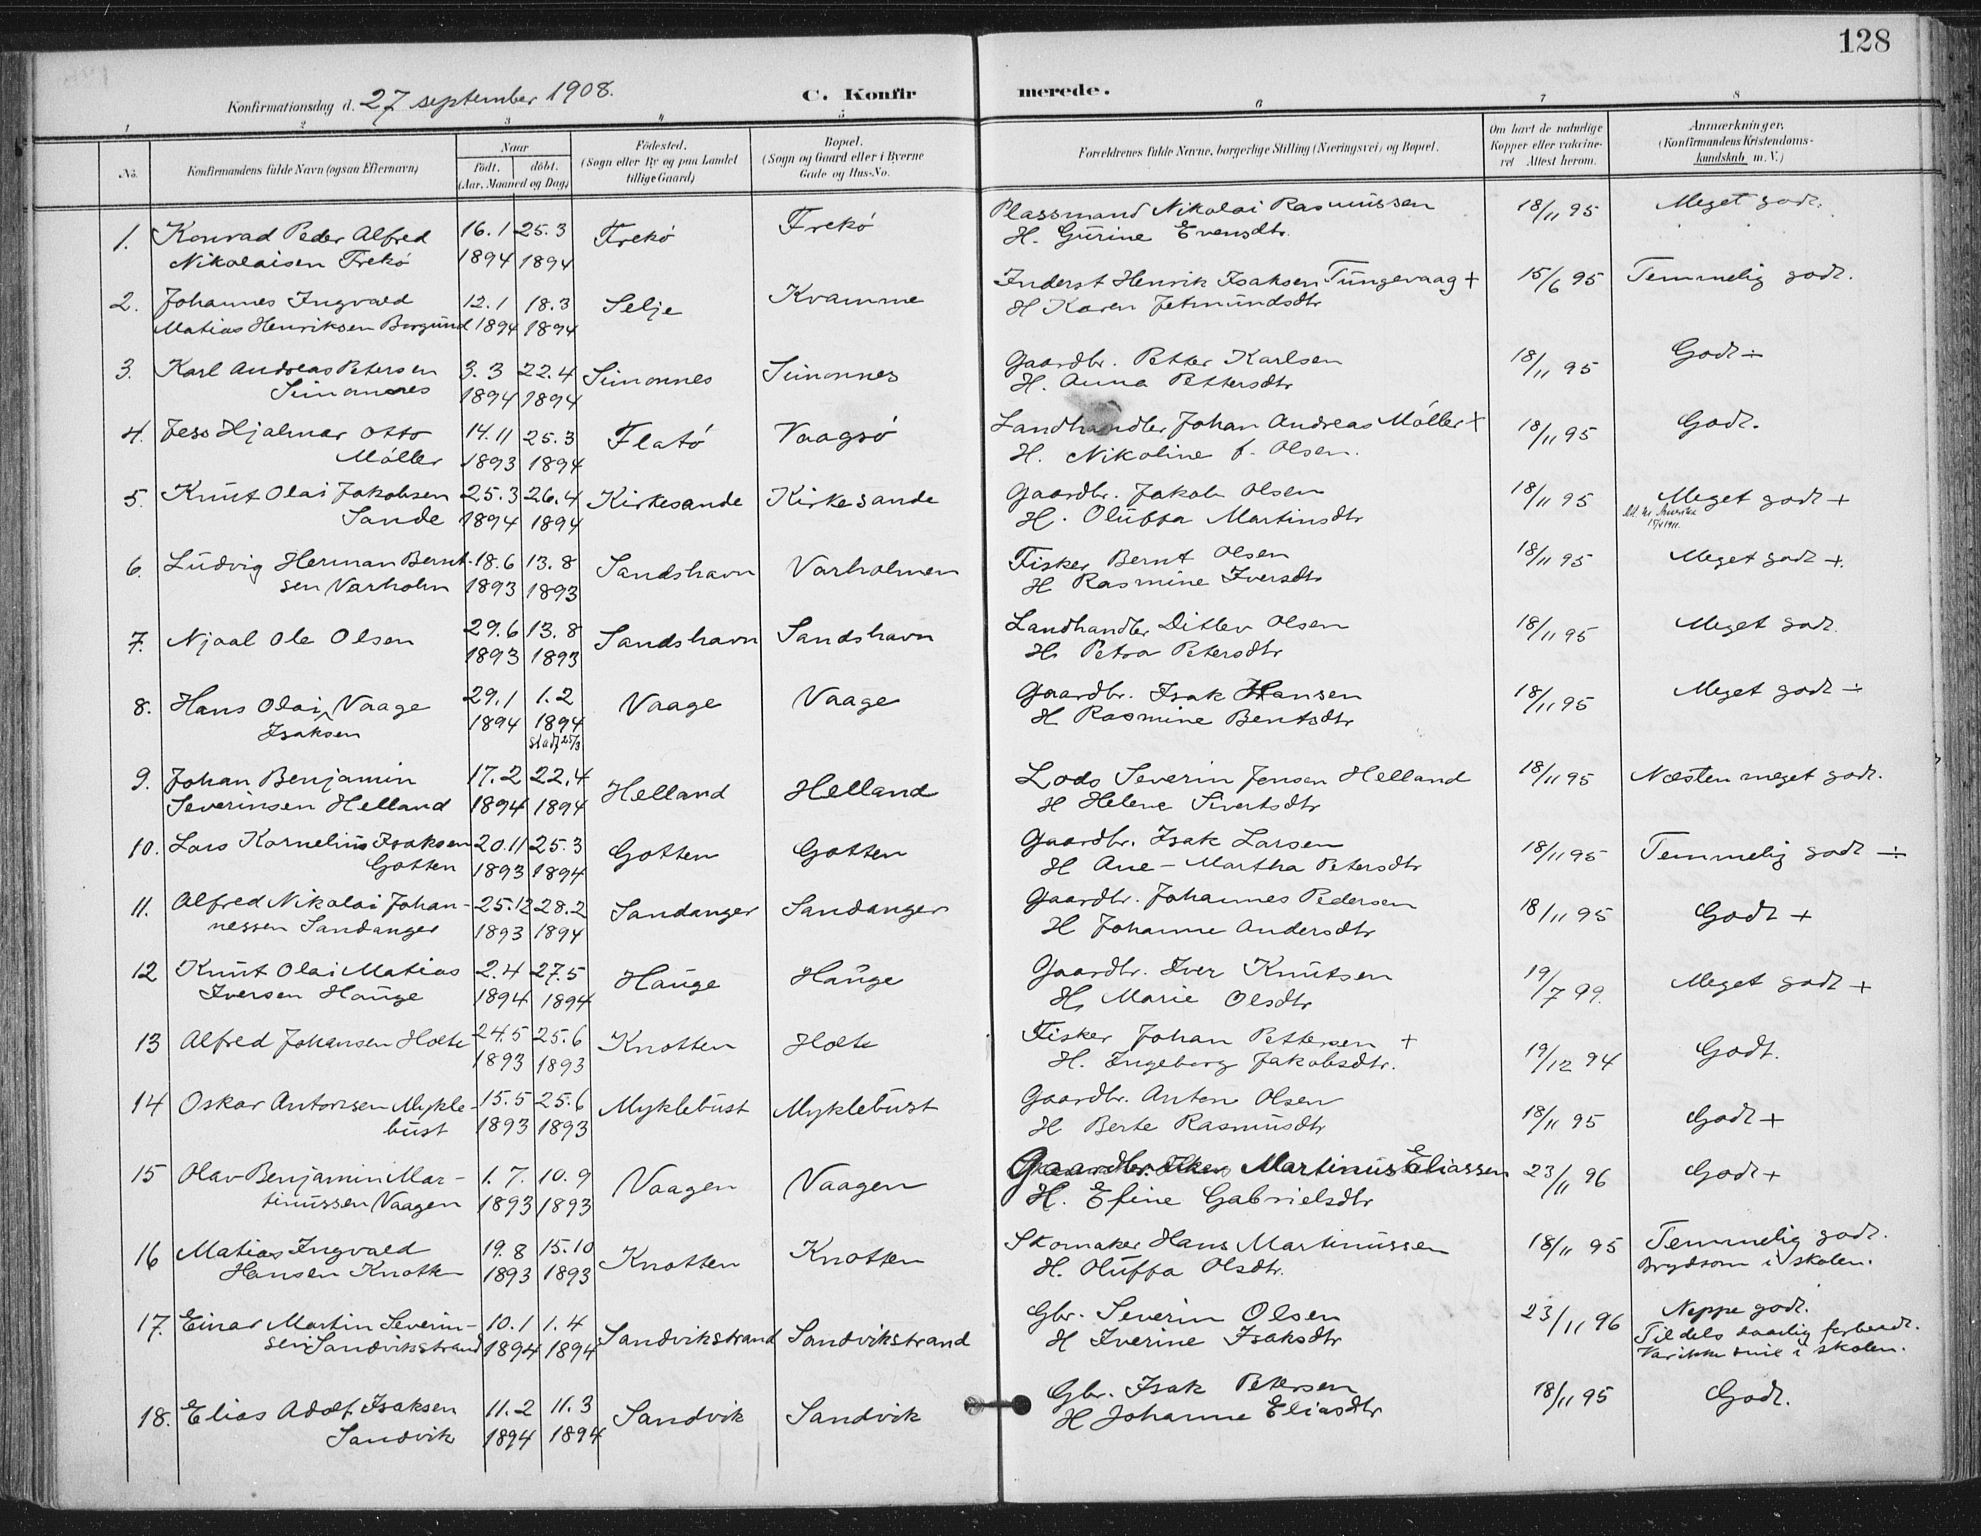 128
Konfirmationsdag d. 27 september 1908. C. Konfirmerede.
1 2 3 4 5 6 7 8
No. Konfirmandens fulde Navn (ogsaa Efternavn) Naar födt. döbt. (Aar, Maaned og Dag) Födested. (Sogn eller By og paa Landet tillige Gaard) Bopæl. (Sogn og Gaard eller i Byerne Gade og Hus-No. Forældrenes fulde Navne, borgerlige Stilling (Næringsvei) og Bopæl. Om havt de naturlige Kopper eller vaccineret Attest herom. Anmærkninger. (Konfirmandens Kristendomskundskab m. V.)
1. Konrad Peder Alfred 16.1 25.3 Frekö Frekö Plassmand Nikolai Rasmussen 18/11 95 Meget godt.
Nikolaisen Frekö 1894 1894 H. Gurine Evensdtr.
2. Johannes Ingvald 12.1 18.3 Selje Kvamme Inderst Henrik Isaksen Tungevaag + 15/6 95 Temmelig godt.
Matias Henriksen Borgund 1894 1894 H Karen Jetmundsdtr
3. Karl Andreas Petersen 3.3 22.4 Simonnes Simonnes Gaardbr. Petter Karlsen 18/11 95 Godt ÷
Simonnes 1894 1894 H. Anna Pettersdtr
4. Jess Hjalmar Otto 14.11 25.3 Flatö Vaagsö Landhandler Johan Andreas Möller + 18/11 95 Godt.
Möller 1893 1894 H. Nikoline f. Olsen.
5. Knut Olai Jakobsen 25.3 26.4 Kirkesande Kirkesande Gaardbr. Jakob Olsen 18/11 95 Meget godt +
Sande 1894 1894 H. Oluffa Martinsdtr
6. Ludvig Herman Bernt- 18.6 13.8 Sandshavn Varholmen Fisker Bernt Olsen 18/11 95 Meget godt +.
sen Varholm 1893 1893 H Rasmine Iversdtr
7. Njaal Ole Olsen 29.6 13.8 Sandshavn Sandshavn Landhandler Ditlev Olsen 18/11 95 Meget godt.
1893 1893 H. Petra Petersdtr
8. Hans Olai Vaage 29.1 1.2 Vaage Vaage Gaardbr. Isak Hansen 18/11 95 Meget godt ÷
Isaksen 1894 1894 H. Rasmine Bentsdtr
stadf 25/3
9. Johan Benjamin 17.2 22.4 Helland Helland Lods Severin Jensen Helland 18/11 95 Næsten meget godt.
Severinsen Helland 1894 1894 H Helene Sivertsdtr
10. Lars Kornelius Isaksen 20.11 25.3 Gotten Gotten Gaardbr. Isak Larsen 18/11 95 Temmelig godt ÷
Gotten 1893 1894 H Ane-Martha Petersdtr
11. Alfred Nikolai Johan- 25.12 28.2 Sandanger Sandanger Gaardbr. Johannes Pedersen 18/11 95 Godt +
nessen Sandanger 1893 1894 H Johanne Andersdtr
12 Knut Olai Matias 2.4 27.5 Hauge Hauge Gaardbr. Iver Knutsen 19/7 99. Meget godt +
Iversen Hauge 1894 1894 H. Marie Olsdtr
13 Alfred Johansen Holte 24.5 25.6 Knotten Holte Fisker Johan Pettersen + 19/12 94 Godt.
1893 1893 H. Ingeborg Jakobsdtr.
14 Oskar Antonsen Mykle- 15.5 25.6 Myklebust Myklebust Gaardbr. Anton Olsen 18/11 95 Godt +
bust 1893 1893 H Berte Rasmusdtr
15 Olav Benjamin Mar- 1.7. 10.9 Vaagen Vaagen Gaardbr. Martinus Eliassen 23/11 96 Godt +
tinussen Vaagen 1893 1893 H. Efine Gabrielsdtr
16 Matias Ingvald 19.8 15.10 Knotten Knotten Skomaker Hans Martinussen 18/11 95 Temmelig godt.
Hansen Knotten 1893 1893 H. Oluffa Olsdtr. Brydsom i skolen.
17. Einar Martin Severin- 10.1 1.4 Sandvikstrand Sandvikstrand Gbr. Severin Olsen 23/11 96 Neppe godt.
sen Sandvikstrand 1894 1894 H Iverine Isaksdtr Tildels daarlig forberedt.
Var ikke snil i skolen.
18. Elias Adolf Isaksen 11.2 11.3 Sandvik Sandvik Gbr. Isak Petersen 18/11 95 Godt.
Sandvik 1894 1894 H Johanne Eliasdtr